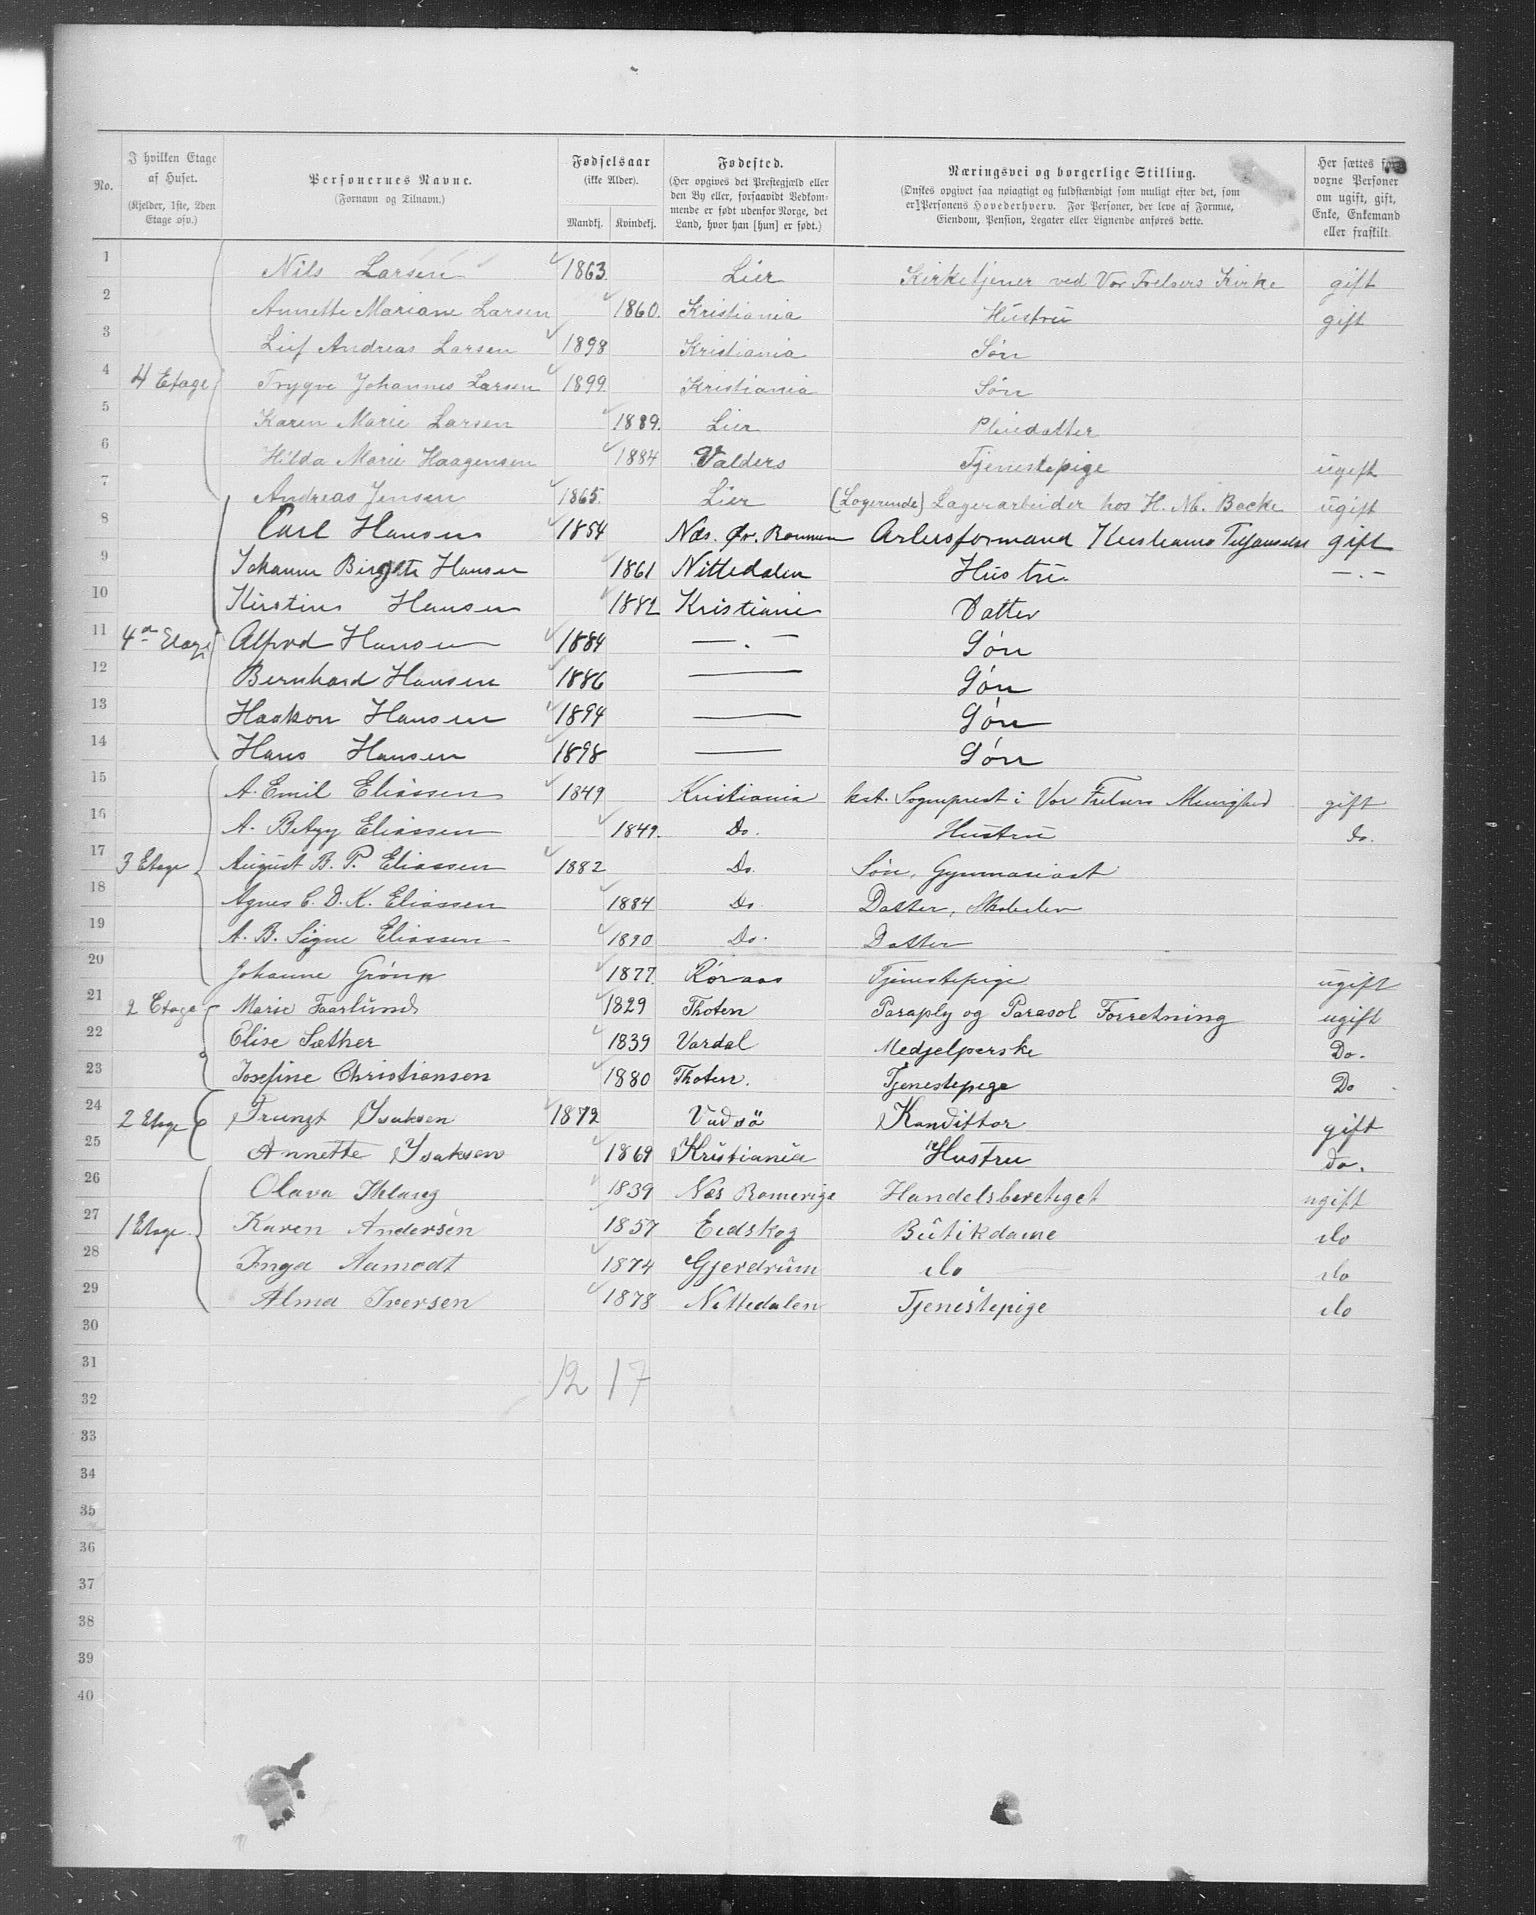 No. | I hvilken Etage af Huset. (Kjelder, 1ste, 2den Etage osv.) | Personernes Navne. (Fornavn og Tilnavn.) | Fødselsaar (ikke Alder). Mandkj. | Kvindekj. | Fødested. (Her opgives det Prestegjæld eller den By eller, forsaavidt Vedkommende er født udenfor Norge, det Land, hvor han [hun] er født.) | Næringsvei og borgerlige Stilling. (Ønskes opgivet saa nøiagtigt og fuldstændigt som muligt efter det, som er Personens Hovederhverv. For Personer, der leve af Formue, Eiendom, Pension, Legater eller Lignende anføres dette. | Her sættes for voxne Personer om ugift, gift, Enke, Enkemand eller fraskilt.
1 Nils Larsen 1863 Lier Kirketjener ved Vor Frelsers Kirke gift
2 Annette Mariane Larsen 1860. Kristiania Hustru gift
3 Leif Andreas Larsen 1898 Kristiania Søn
4 4 Etage Trygve Johannes Larsen 1899 Kristiania Søn
5 Karen Marie Larsen 1889. Lier Pleiedatter
6 Hilda Marie Haagensen 1884 Valders Tjenestepige ugift
7 Andreas Jensen 1865. Lier (Logerende) Lagerarbeider hos H. M. Backe ugift
8 Carl Hansen 1854 Næs. Øv. gift
9 Johanne Birgite Hansen 1861 Nittedalen Hustru —.—
10 Kirstine Hansen 1882 Kristiania Datter
11 4de Etage Alfred Hansen 1884 —.— Søn
12 Bernhard Hansen 1886 — Søn
13 Haakon Hansen 1894 — Søn
14 Hans Hansen 1898 — Søn
15 A. Emil Eliassen 1849 Kristiania kst. Sogneprest i Vor Frelsers Menighed gift
16 A. Betzy Eliassen 1849. Do. Hustru do.
17 3 Etage August B. P. Eliassen 1882 Do. Søn, Gymnasiast
18 Agnes C. D. K. Eliassen 1884 Do Datter,
19 A. B. Signe Eliassen 1890 Do. Datter
20 Johanne 1877 Røraas Tjenestepige ugift
21 2 Etage Marie Faarlund 1829 Thoten Paraply og Parasol Forretning ugift
22 Elise Sæther 1839 Vardal Medjelperske Do.
23 Josefine Christiansen 1880 Thoten. Tjenestepige Do
24 2 Etage Frantz Ysaksen 1872 Vadsö Kondittor gift
25 Annette Ysaksen 1869 Kristiania Hustru do.
26 Olava 1839 Næs Romerige Handelsberetiget ugift
27 1 Etage Karen Andersen 1857 Eidskog Butikdame do
28 Inga Aamodt 1874 Gjerdrum do do
29 Alma Iversen 1878 Nittedalen Tjenestepige do
30
31
12 17
32
33
34
35
36
37
38
39
40